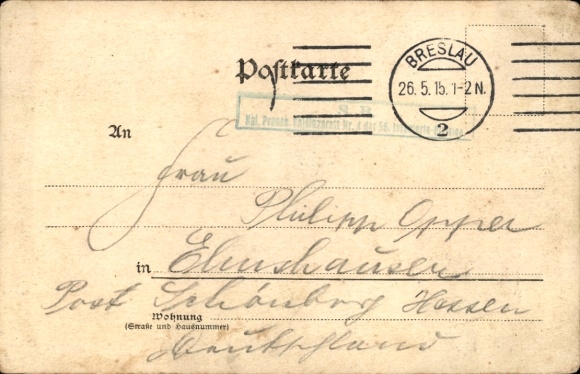 Postkarte
BRESLAU
26.5.15.1-2N.
2
S. B.
Kgl. Preuss. Feldlazarett Nr. 4 der 56. Infanterie-Division
An
Frau
Philipp Opper
in Elmshausen
Post Schönberg Hessen
Wohnung
(Straße und Hausnummer)
Deutschland